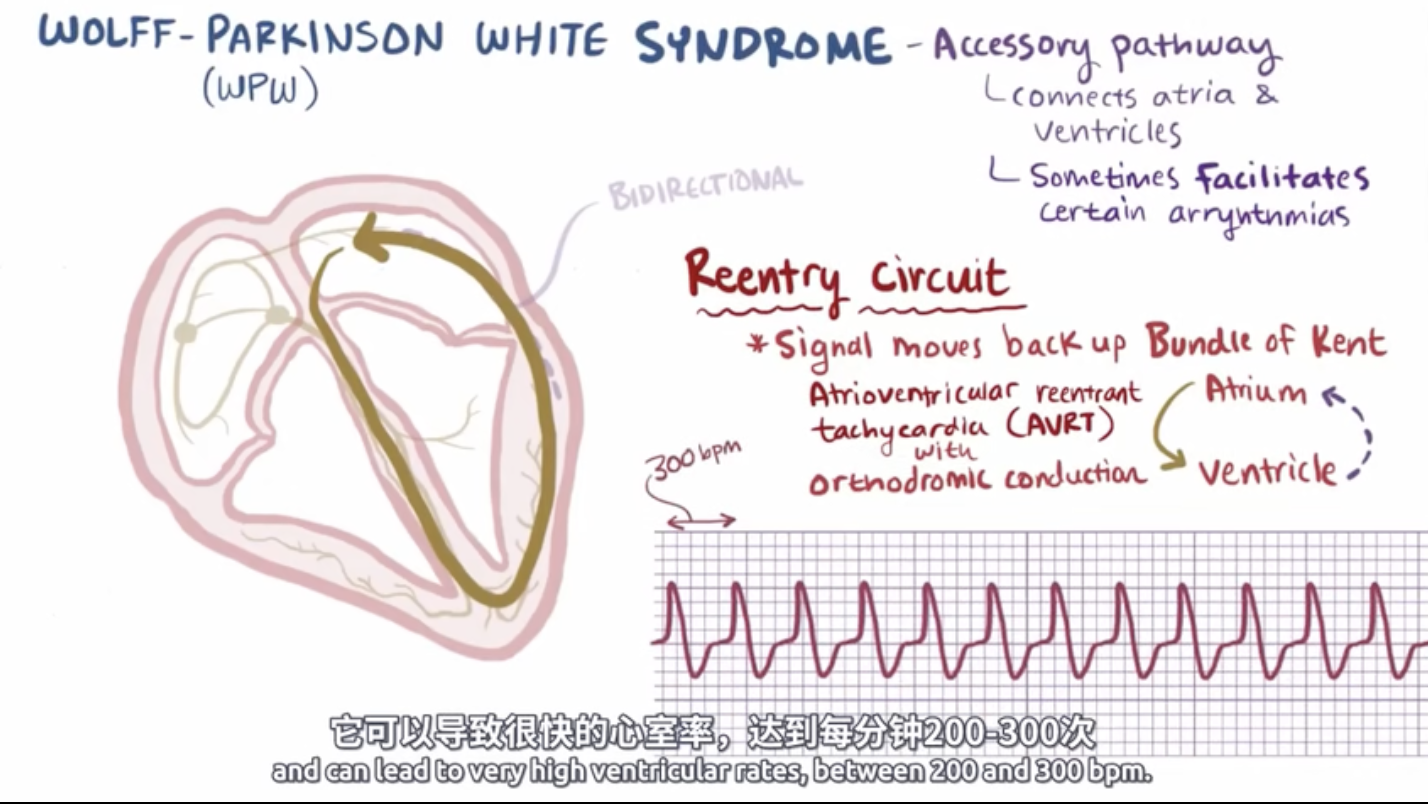 WOLFF-PARKINSON WHITE SYNDROME - Accessory pathway
(WPW)
connects atria &
ventricles
Sometimes facilitates
certain arryhthmias
BIDIRECTIONAL
Reentry circuit
*Signal moves back up Bundle of Kent
Atrioventricular reentrant
tachycardia (AVRT)
with
orthodromic conduction
Atrium
Ventricle
300 bpm
它可以导致很快的心室率，达到每分钟200-300次
and can lead to very high ventricular rates, between 200 and 300 bpm.